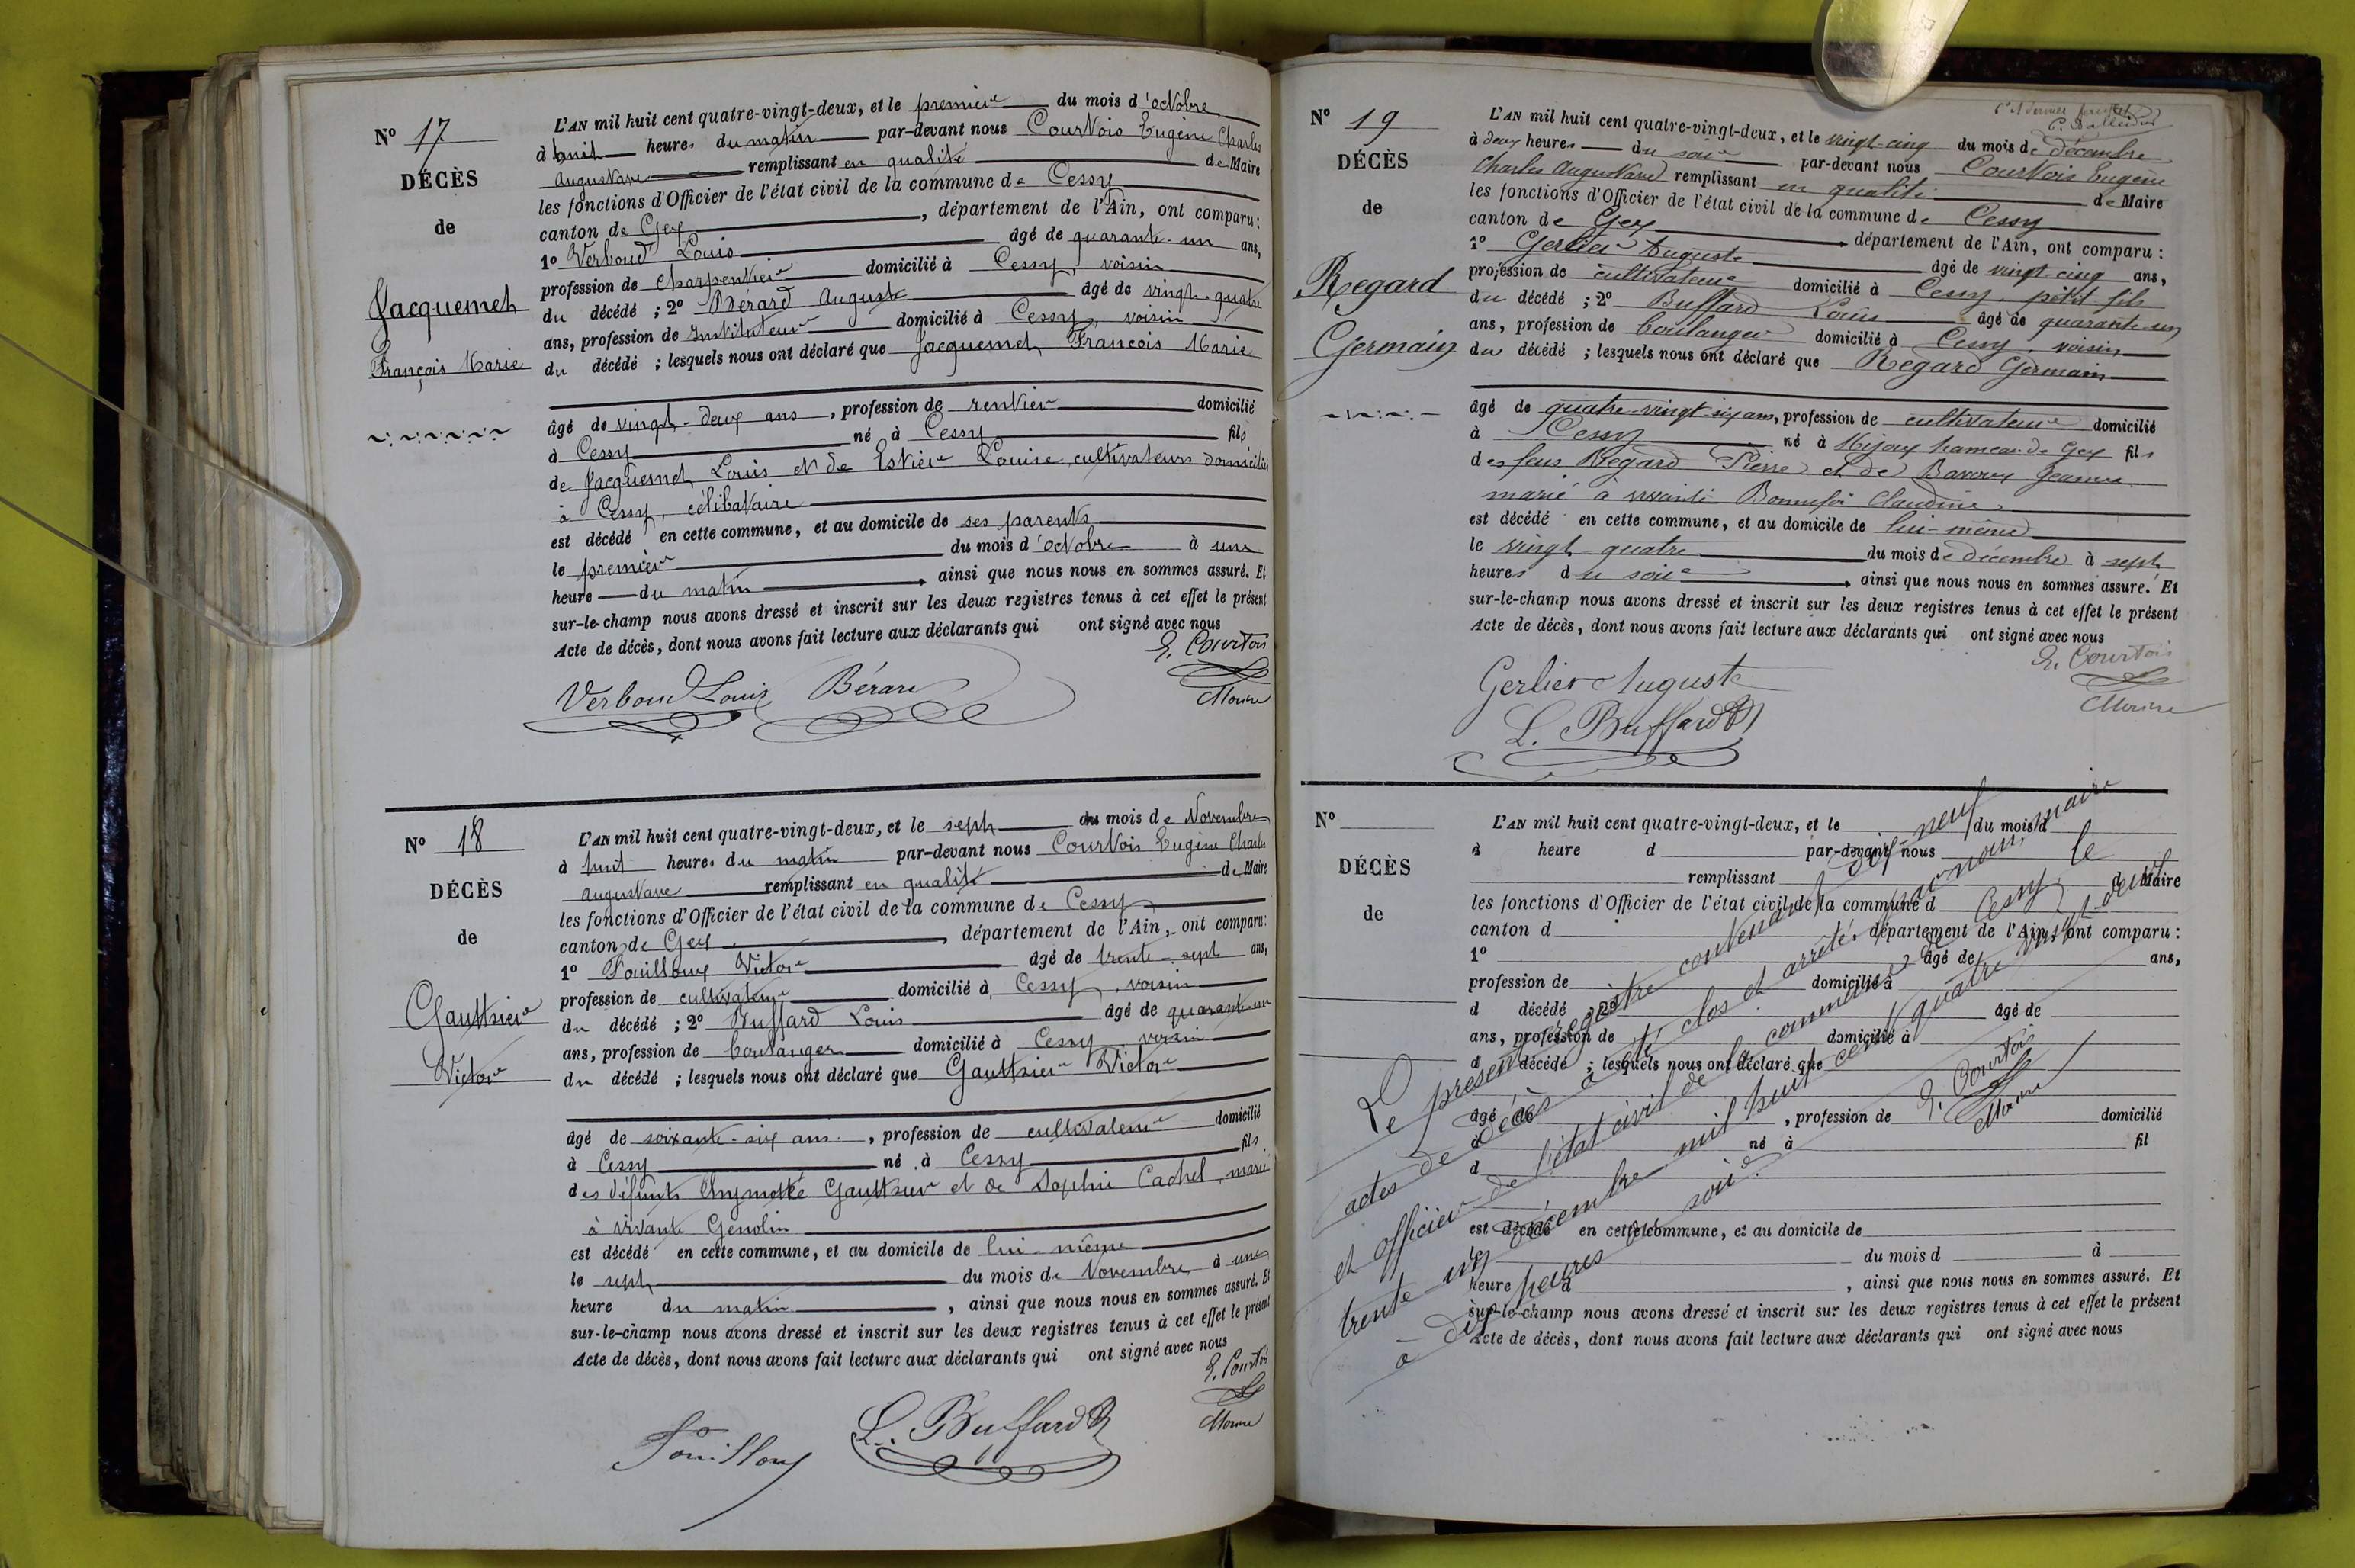 N° 17
DÉCÈS
de
Jacquemet
François Marie
L'AN mil huit cent quatre-vingt-deux, et le premier du mois d'octobre
à huit heures du matin par-devant nous Courtois Eugène Charles
Augustave remplissant en qualité de Maire
les fonctions d'Officier de l'état civil de la commune de Cessy
canton de Gex, département de l'Ain, ont comparu:
1° Verboud Louis âgé de quarante-un ans,
profession de charpentier domicilié à Cessy, voisin
du décédé ; 2° Bérard Auguste âgé de vingt-quatre
ans, profession de Instituteur domicilié à Cessy, voisin
du décédé ; lesquels nous ont déclaré que Jacquemet François Marie
âgé de vingt-deux ans, profession de rentier domicilié
à Cessy né à Cessy fils
de Jacquemet Louis et de Estier Louise, cultivateurs domiciliés
à Cessy, célibataire
est décédé en cette commune, et au domicile de ses parents
le premier du mois d'octobre à une
heure du matin, ainsi que nous nous en sommes assuré. Et
sur-le-champ nous avons dressé et inscrit sur les deux registres tenus à cet effet le présent
Acte de décès, dont nous avons fait lecture aux déclarants qui ont signé avec nous
E. Courtois
Verboud Louis Bérard
Maire
N° 18
DÉCÈS
de
Gauthier
Victor
L'AN mil huit cent quatre-vingt-deux, et le sept du mois de Novembre
à huit heures du matin par-devant nous Courtois Eugène Charles
Augustave remplissant en qualité de Maire
les fonctions d'Officier de l'état civil de la commune de Cessy
canton de Gex, département de l'Ain, ont comparu:
1° Fouilloux Victor âgé de trente-sept ans,
profession de cultivateur domicilié à Cessy, voisin
du décédé ; 2° Buffard Louis âgé de quarante-un
ans, profession de boulanger domicilié à Cessy voisin
du décédé ; lesquels nous ont déclaré que Gauthier Victor
âgé de soixante-six ans, profession de cultivateur domicilié
à Cessy né à Cessy fils
des défunts Gauthier et de Sophie Cachel, marié
à vivante Genolin
est décédé en cette commune, et au domicile de lui-même
le sept du mois de Novembre à une
heure du matin, ainsi que nous nous en sommes assuré. Et
sur-le-champ nous avons dressé et inscrit sur les deux registres tenus à cet effet le présent
Acte de décès, dont nous avons fait lecture aux déclarants qui ont signé avec nous
E. Courtois
Maire
Fouilloux L. Buffard
N° 19
DÉCÈS
de
Regard
Germain
L'AN mil huit cent quatre-vingt-deux, et le vingt-cinq du mois de décembre
à deux heures du soir par-devant nous Courtois Eugène
Charles Augustave remplissant en qualité de Maire
les fonctions d'Officier de l'état civil de la commune de Cessy
canton de Gex département de l'Ain, ont comparu :
1° Gerlier Auguste âgé de vingt cinq ans,
profession de cultivateur domicilié à Cessy, petit fils
du décédé ; 2° Buffard Louis âgé de quarante-un
ans, profession de boulanger domicilié à Cessy, voisin
du décédé ; lesquels nous ont déclaré que Regard Germain
âgé de quatre-vingt-six ans, profession de cultivateur domicilié
à Cessy né à Mijoux hameau de Gex fils
des feus Regard Pierre et de Bavoux Jeanne
marié à vivante Bonnefoi Claudine
est décédé en cette commune, et au domicile de lui-même
le vingt quatre du mois de décembre à sept
heures du soir, ainsi que nous nous en sommes assuré. Et
sur-le-champ nous avons dressé et inscrit sur les deux registres tenus à cet effet le présent
Acte de décès, dont nous avons fait lecture aux déclarants qui ont signé avec nous
E. Courtois
Gerlier Auguste
Maire
L. Buffard
N°
DÉCÈS
de
L'AN mil huit cent quatre-vingt-deux, et le du mois d
à heure d par-devant nous
remplissant d Maire
les fonctions d'Officier de l'état civil de la commune d
canton d département de l'Ain, ont comparu :
1° âgé de ans,
profession de domicilié à
d décédé ; 2° âgé de
ans, profession de domicilié à
d décédé ; lesquels nous ont déclaré que
âgé de , profession de domicilié
à né à fil
d
est décédé en cette commune, et au domicile de
le du mois d à
heure d , ainsi que nous nous en sommes assuré. Et
sur-le-champ nous avons dressé et inscrit sur les deux registres tenus à cet effet le présent
Acte de décès, dont nous avons fait lecture aux déclarants qui ont signé avec nous
Le présent registre contenant dix neuf
actes de décès a été clos et arrêté par nous, maire
et officier de l'état civil de la commune de Cessy, le
trente un décembre mil huit cent quatre vingt-deux
à dix heures du soir.
E. Courtois
Maire